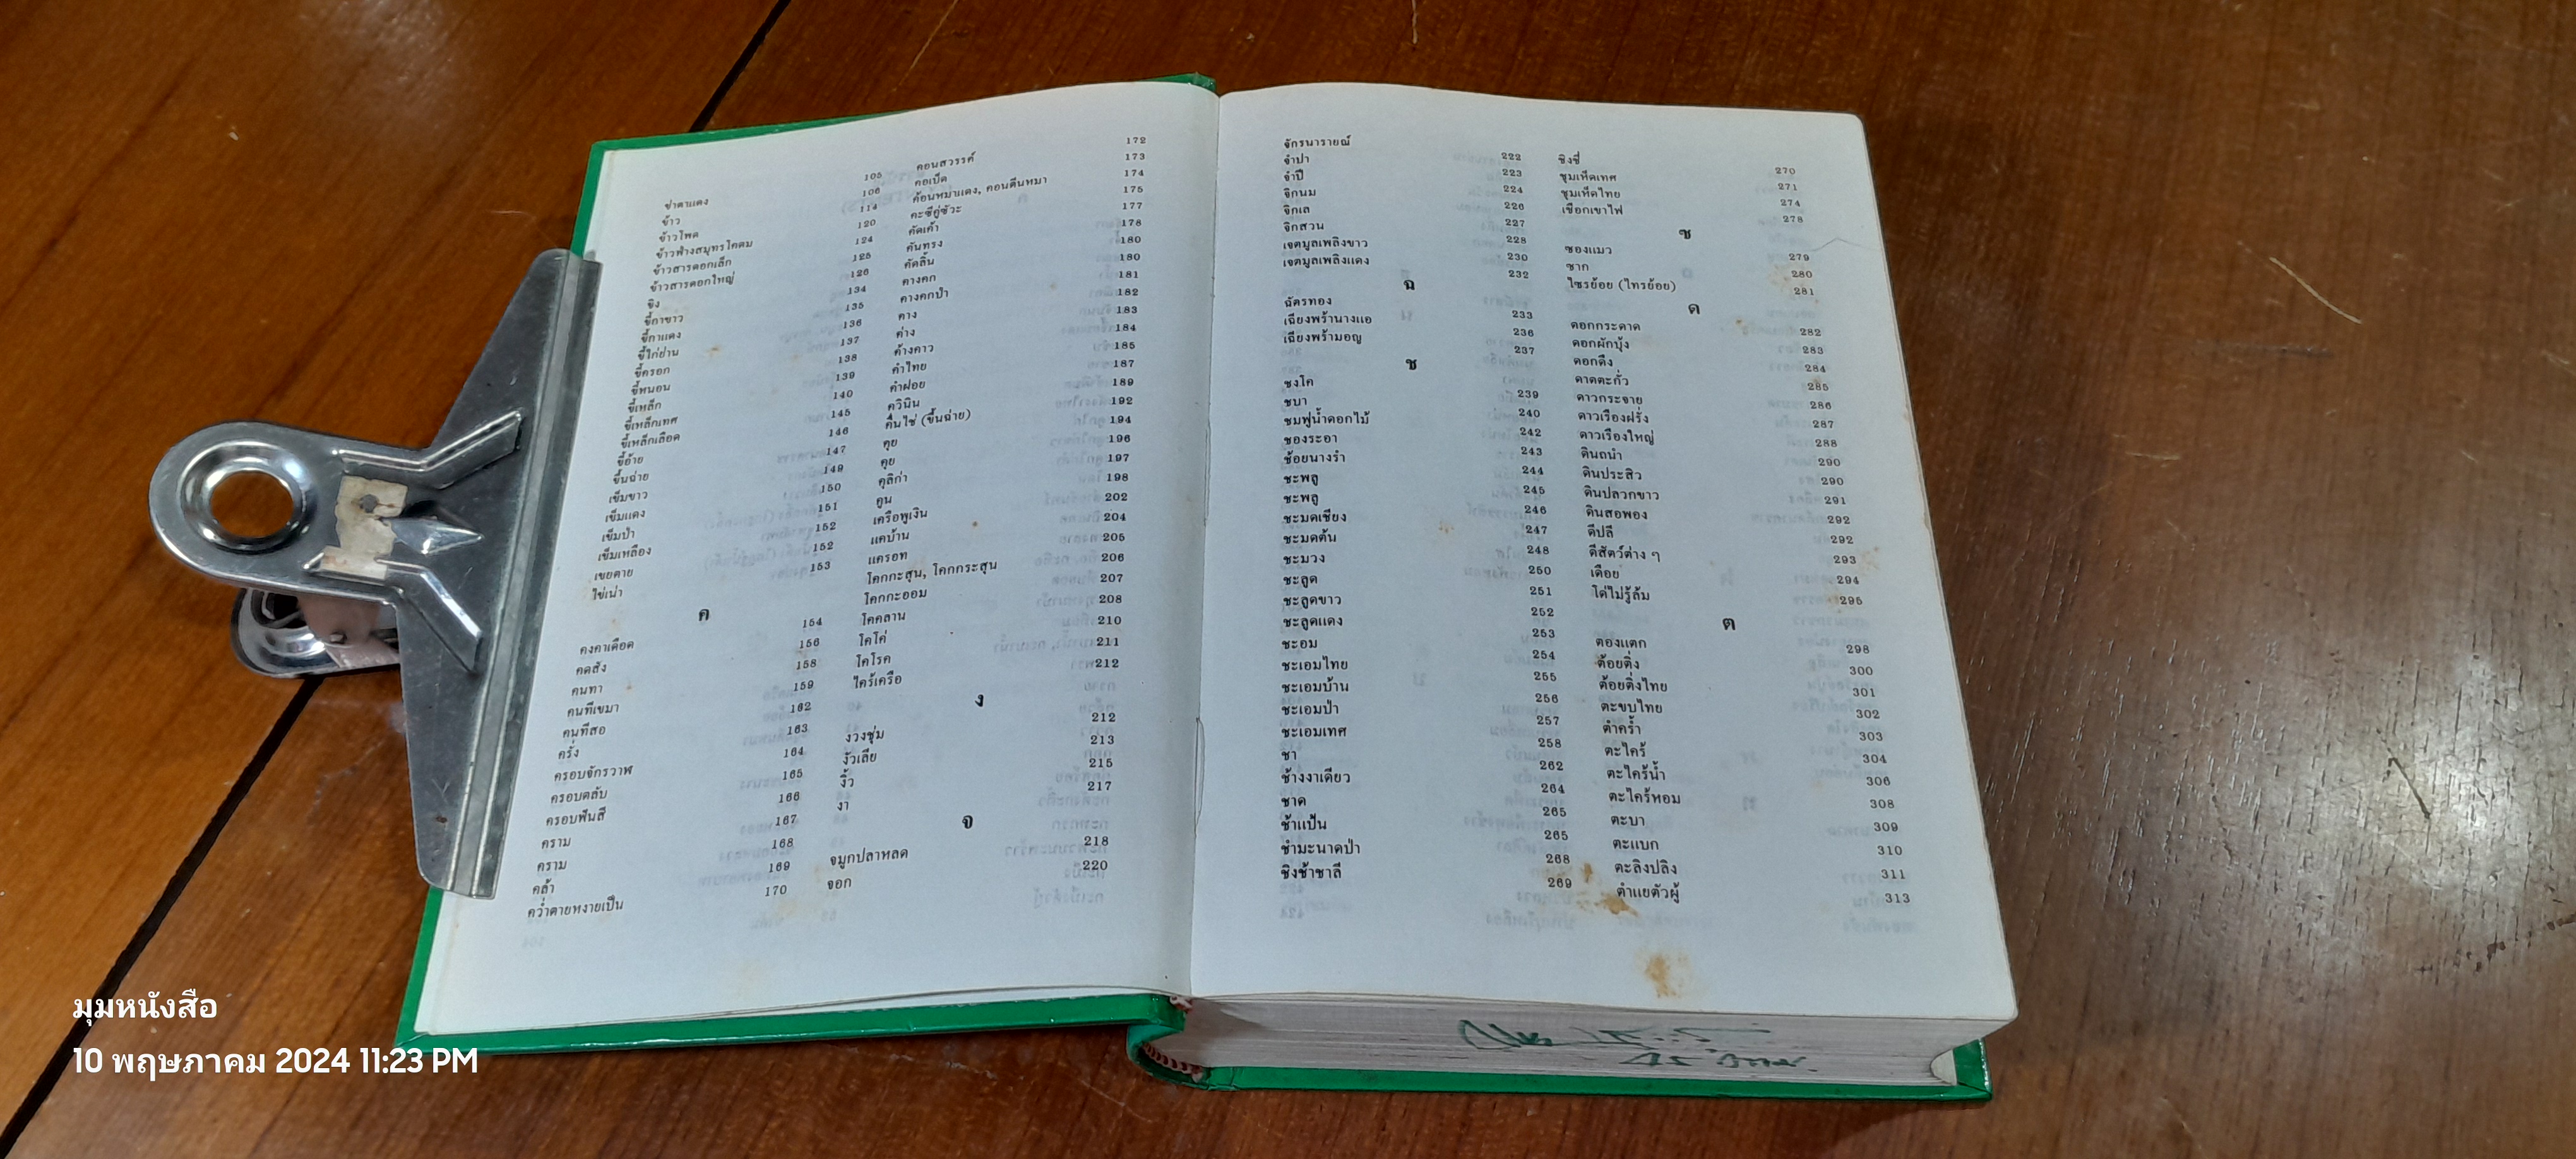 ข่าตาแดง 105
ข้าว 106
ข้าวโพด 114
ข้าวฟ่างสมุทรโคดม 120
ข้าวสารดอกเล็ก 124
ข้าวสารดอกใหญ่ 125
ขิง 126
ขี้กาขาว 134
ขี้กาแดง 135
ขี้ไก่ย่าน 136
ขี้ครอก 137
ขี้หนอน 138
ขี้เหล็ก 139
ขี้เหล็กเทศ 140
ขี้เหล็กเลือด 145
ขี้อ้าย 146
ขึ้นฉ่าย 147
เข็มขาว 149
เข็มแดง 150
เข็มป่า 151
เข็มเหลือง 152
เขยตาย 152
ไข่เน่า 153
ค
คงคาเดือด 154
คดสัง 156
คนทา 158
คนทีเขมา 159
คนทีสอ 162
ครั่ง 163
ครอบจักรวาฬ 164
ครอบตลับ 165
ครอบฟันสี 166
คราม 167
คราม 168
คล้า 169
คว่ำตายหงายเป็น 170
คอนสวรรค์ 172
คอเบ็ด 173
ค้อนหมาแดง, คอนตีนหมา 174
คะซีคู่ซัวะ 175
คัดเค้า 177
คันทรง 178
คัดลิ้น 180
คางคก 180
คางคกป่า 181
คาง 182
ค่าง 183
ค้างคาว 184
คำไทย 185
คำฝอย 187
ควินิน 189
คื่นไช่ (ขึ้นฉ่าย) 192
คุย 194
คุย 196
คุลิก่า 197
คูน 198
เครือพูเงิน 202
แคบ้าน 204
แครอท 205
โคกกะสุน, โคกกระสุน 206
โคกกะออม 207
โคคลาน 208
โคโค่ 210
ไคโรค 211
ไคร้เครือ 212
ง
งวงชุ่ม 212
งัวเลีย 213
งิ้ว 215
งา 217
จ
จมูกปลาหลด 218
จอก 220
จักรนารายณ์ 222
จำปา 223
จำปี 224
จิกนม 226
จิกเล 227
จิกสวน 228
เจตมูลเพลิงขาว 230
เจตมูลเพลิงแดง 232
ฉ
ฉัตรทอง 233
เฉียงพร้านางแอ 236
เฉียงพร้ามอญ 237
ช
ชงโค 239
ชบา 240
ชมพู่น้ำดอกไม้ 242
ชองระอา 243
ช้อยนางรำ 244
ชะพลู 245
ชะพลู 246
ชะมดเชียง 247
ชะมดต้น 248
ชะมวง 250
ชะลูด 251
ชะลูดขาว 252
ชะลูดแดง 253
ชะอม 254
ชะเอมไทย 255
ชะเอมบ้าน 256
ชะเอมป่า 257
ชะเอมเทศ 258
ชา 262
ช้างงาเดียว 264
ชาด 265
ช้าแป้น 265
ชำมะนาดป่า 268
ชิงช้าชาลี 269
ชิงชี่ 270
ชุมเห็ดเทศ 271
ชุมเห็ดไทย 274
เชือกเขาไฟ 278
ซ
ซองแมว 279
ซาก 280
ไซรย้อย (ไทรย้อย) 281
ด
ดอกกระดาด 282
ดอกผักบุ้ง 283
ดอกดึง 284
ดาดตะกั่ว 285
ดาวกระจาย 286
ดาวเรืองฝรั่ง 287
ดาวเรืองใหญ่ 288
ดินถนำ 290
ดินประสิว 290
ดินปลวกขาว 291
ดินสอพอง 292
ดีปลี 292
ดีสัตว์ต่าง ๆ 293
เดือย 294
โด่ไม่รู้ล้ม 295
ต
ตองแตก 298
ต้อยติ่ง 300
ต้อยติ่งไทย 301
ตะขบไทย 302
ตำคร้ำ 303
ตะไคร้ 304
ตะไคร้น้ำ 306
ตะไคร้หอม 308
ตะบา 309
ตะแบก 310
ตะลิงปลิง 311
ตำแยตัวผู้ 313
มุมหนังสือ
10 พฤษภาคม 2024 11:23 PM